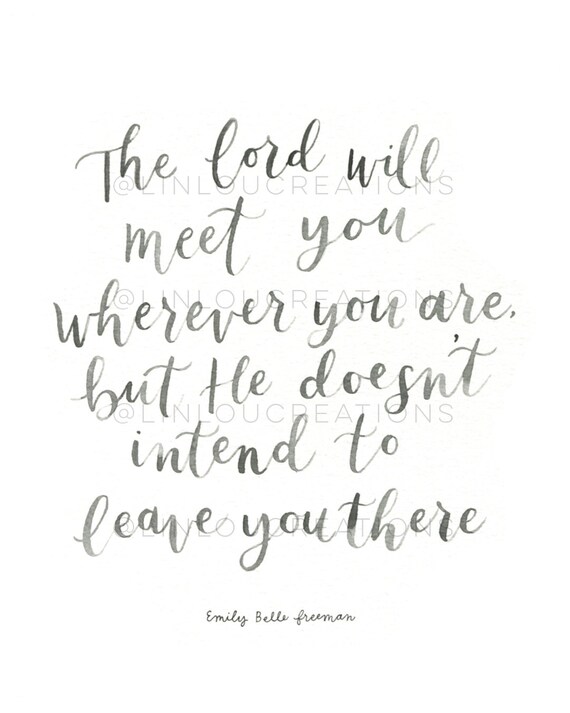 The Lord will
@LINLOUCREATIONS
meet you
wherever you are,
@LINLOUCREATIONS
but He doesn't
@LINLOUCREATIONS
intend to
leave you there
@LINLOUCREATIONS
Emily Belle freeman